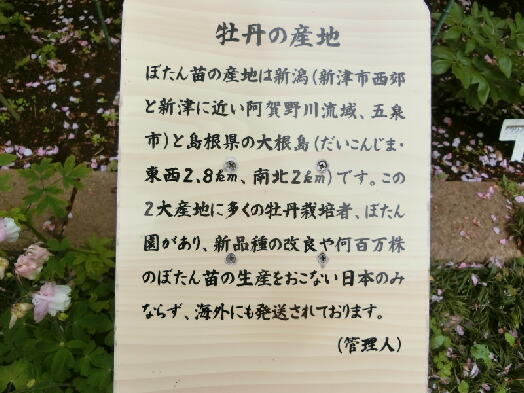 牡丹の産地
ぼたん苗の産地は新潟(新津市西郊
と新津に近い阿賀野川流域、五泉
市)と島根県の大根島(だいこんじま・
東西2.8km、南北2km)です。この
2大産地に多くの牡丹栽培者、ぼたん
園があり、新品種の改良や何百万株
のぼたん苗の生産をおこない日本のみ
ならず、海外にも発送されております。
(管理人)